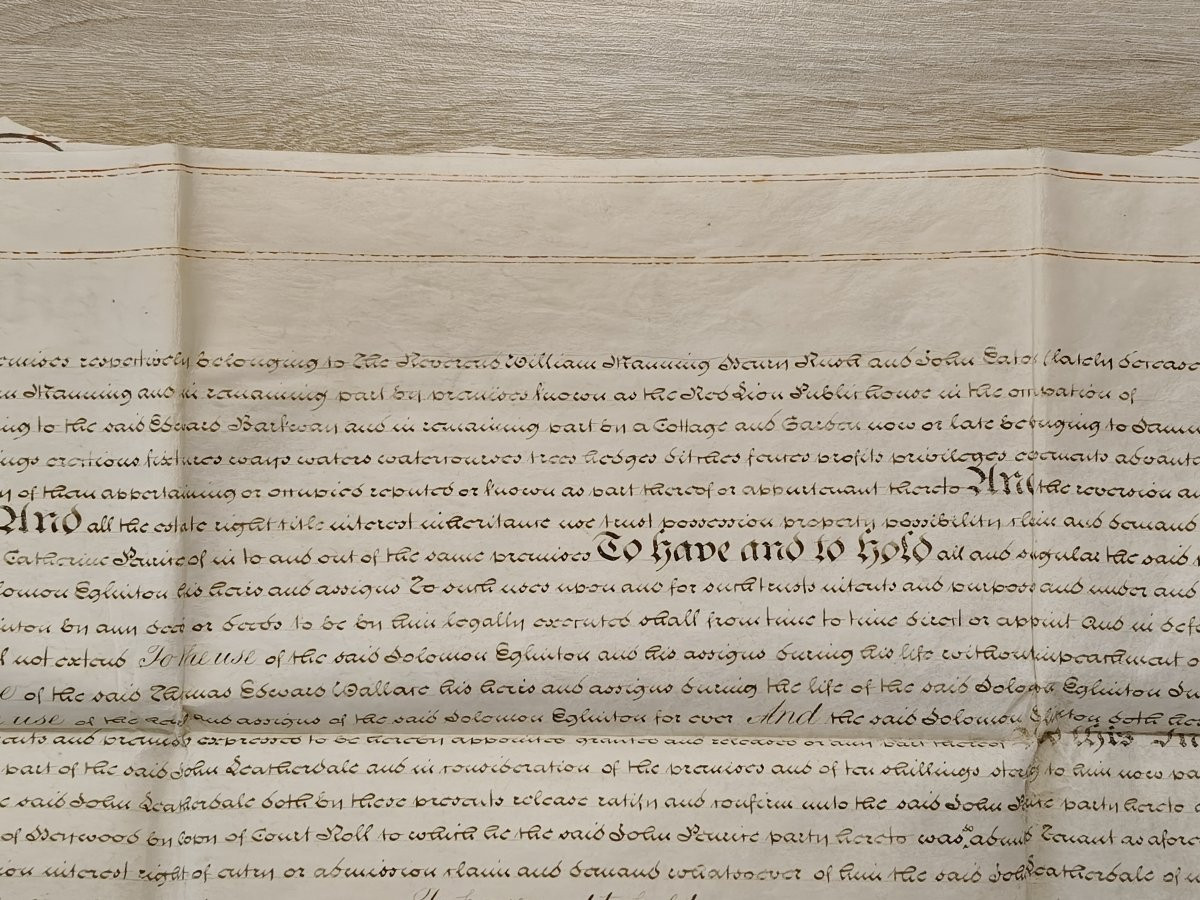 respectively belonging to The Reverend William Manning Henry Rush and John Eaton lately
Manning and in remaining part by premises known as the Red Lion Public house in the occupation of
to the said Edward Barkway and in remaining part by a Cottage and Garden now or late belonging to
erections fixtures ways waters watercourses trees hedges ditches fences profits privileges easements
of them appertaining or occupied reputed or known as part thereof or appurtenant thereto And the reversion
And all the estate right title interest inheritance use trust possession property possibility claim and demand
Catherine of in to and out of the same premises To have and to hold all and singular the said
Eglinton his heirs and assigns To such uses upon and for such trusts intents and purposes and under and
by any deed or deeds to be by him legally executed shall from time to time direct or appoint And in
not extend To the use of the said Solomon Eglinton and his assigns during his life without impeachment
of the said Thomas Edward Wallace his heirs and assigns during the life of the said Solomon Eglinton
use of the heirs and assigns of the said Solomon Eglinton for ever And the said Solomon Eglinton doth
and premises expressed to be hereby appointed granted and released or any part thereof this
part of the said John Leatherdale and in consideration of the premises and of ten shillings to him now
said John Leatherdale doth by these presents release ratify and confirm unto the said John party hereto
of by Copy of Court Roll to which he the said John party hereto was so Tenant as
interest right of entry or admission claim and demand whatsoever of him the said John Leatherdale of